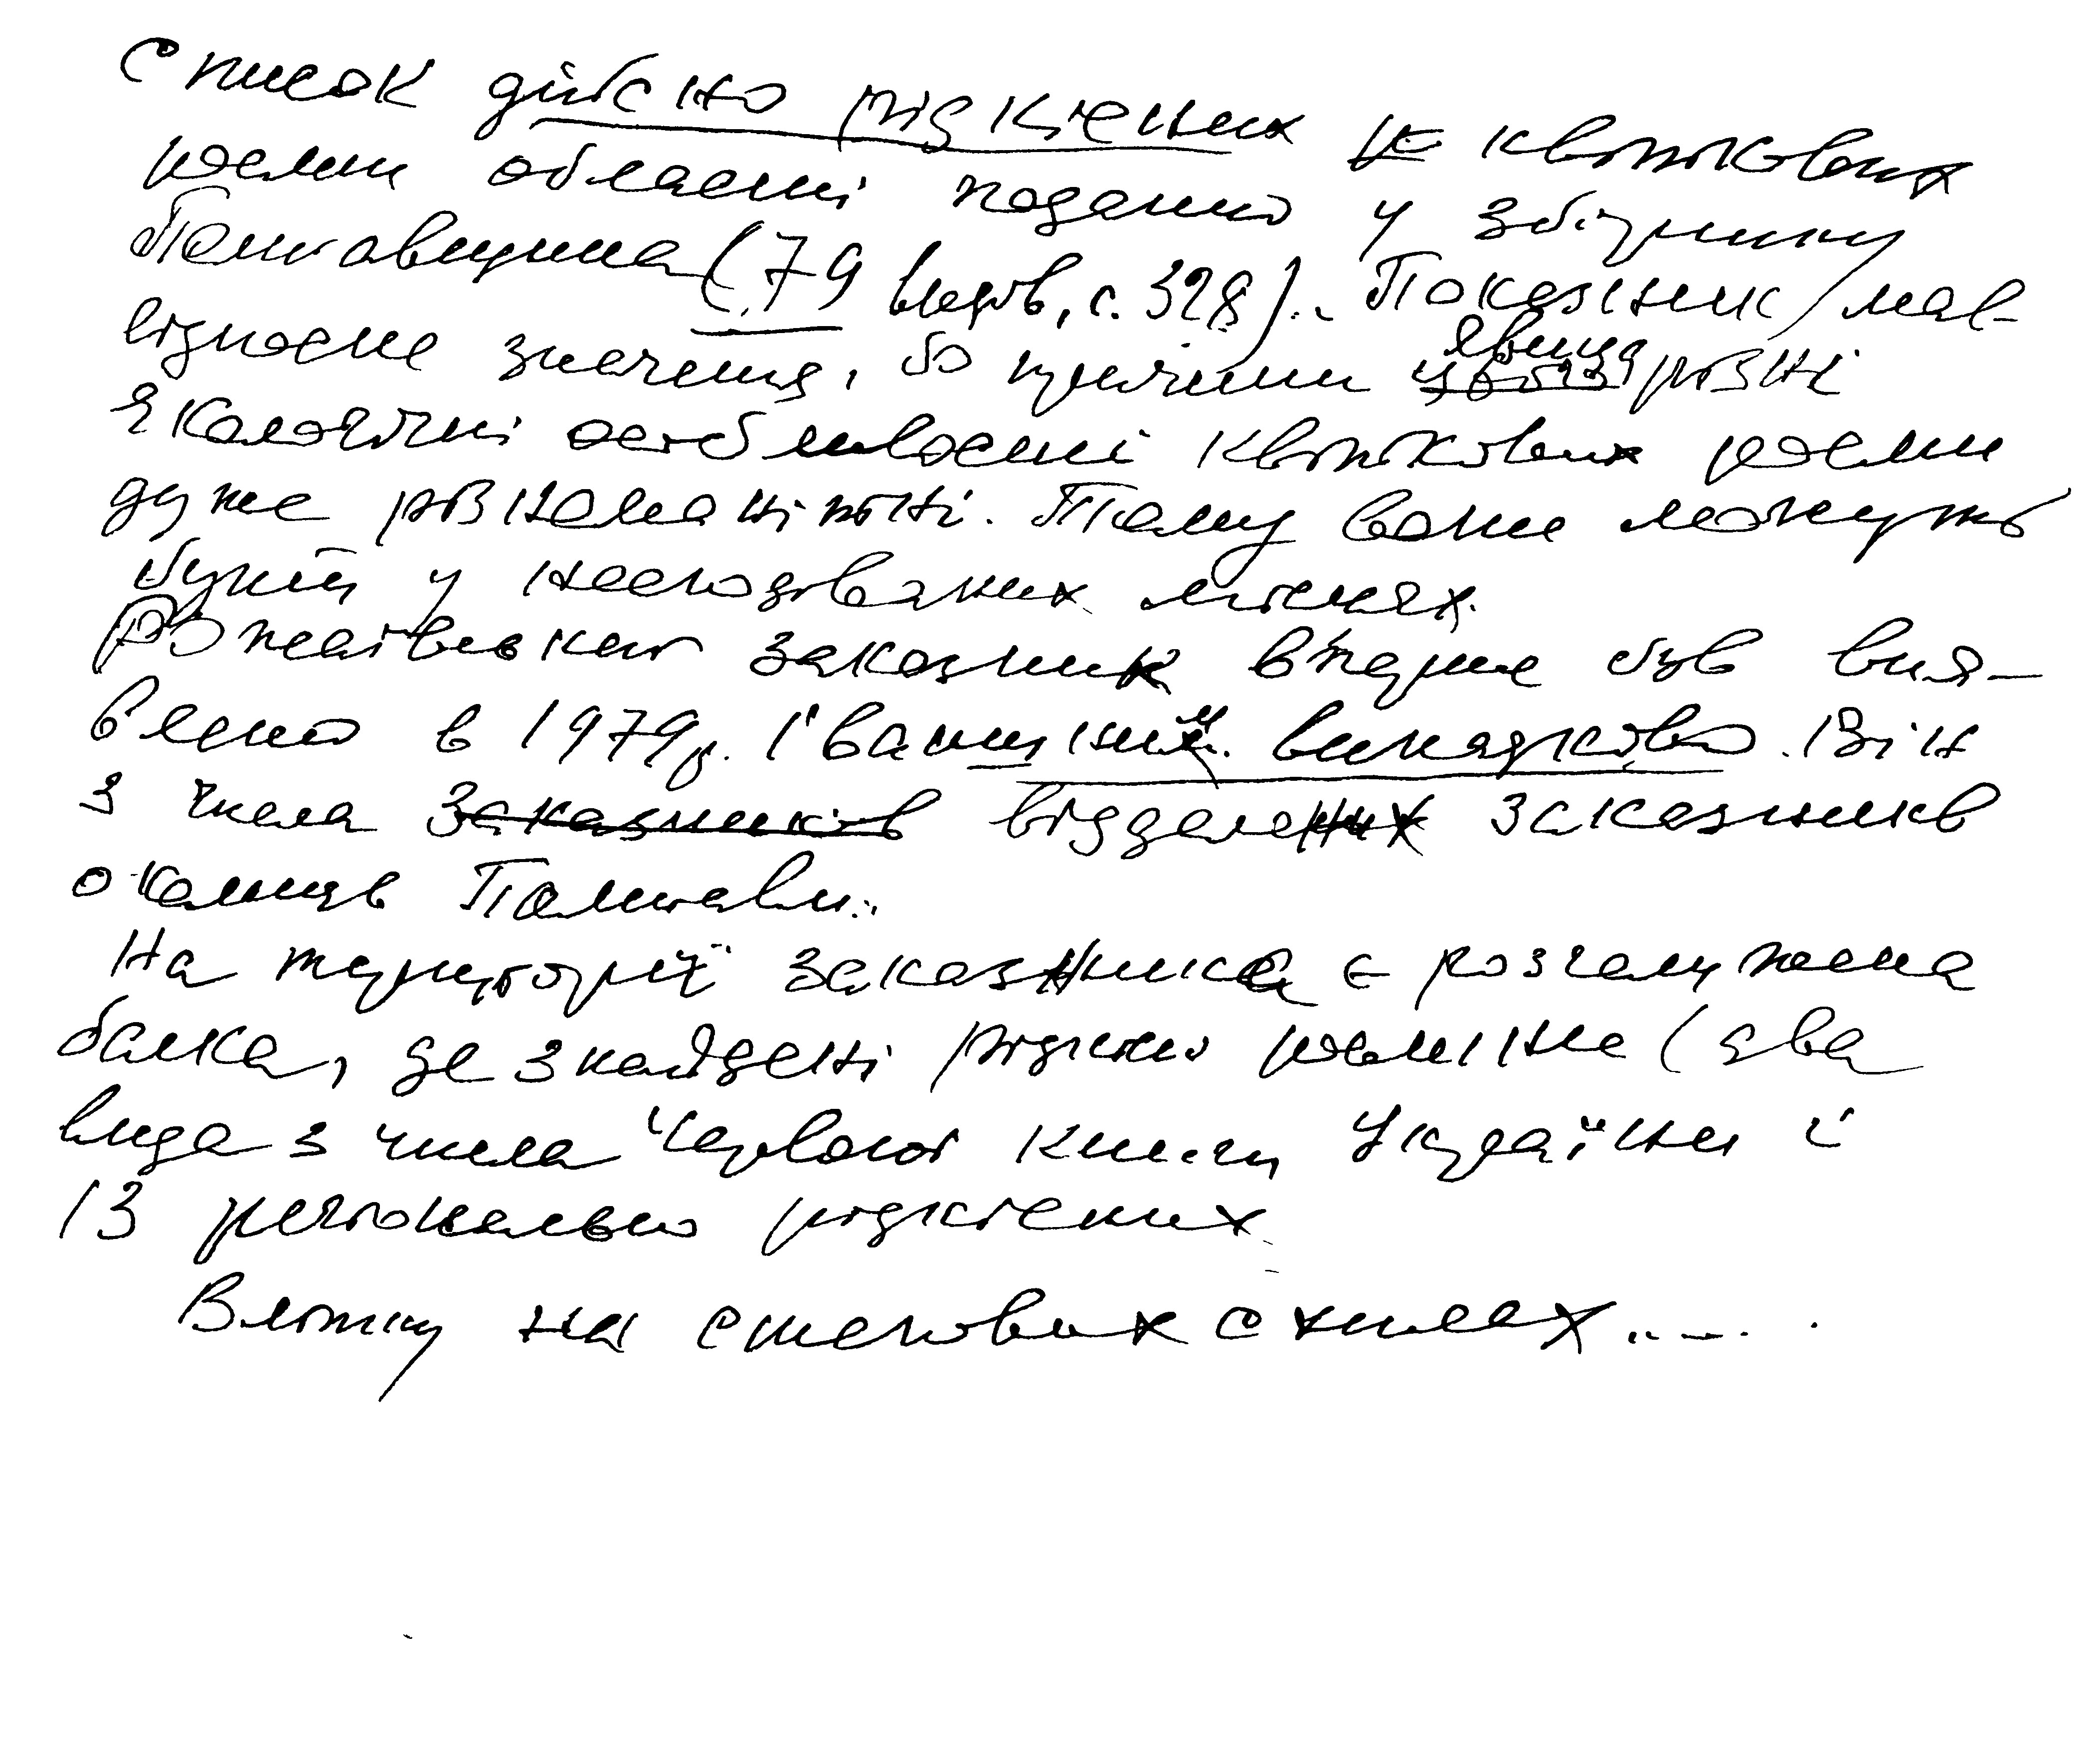 Список дійсно рідкісних квіткових
рослин області подано у збірнику
Полтавщина (79 видів, с. 328). Показник мав
відносне значення, бо причини явища різні
Екологічні особливості квіткових рослин
дуже різноманітні. Тому вони можуть
бути у несподіваних місцях.
Рожаївський заказник вперше був вия-
влено в 1979р. і випадково. Він
з числа заказників віддалених заказників
околиць Полтави.
На території заказника є розгалужена
балка, де знайдені рідкісно рослини (два
вида з числа Червоної книги України і
13 регіонально рідкісних
Влітку на степових схилах .....